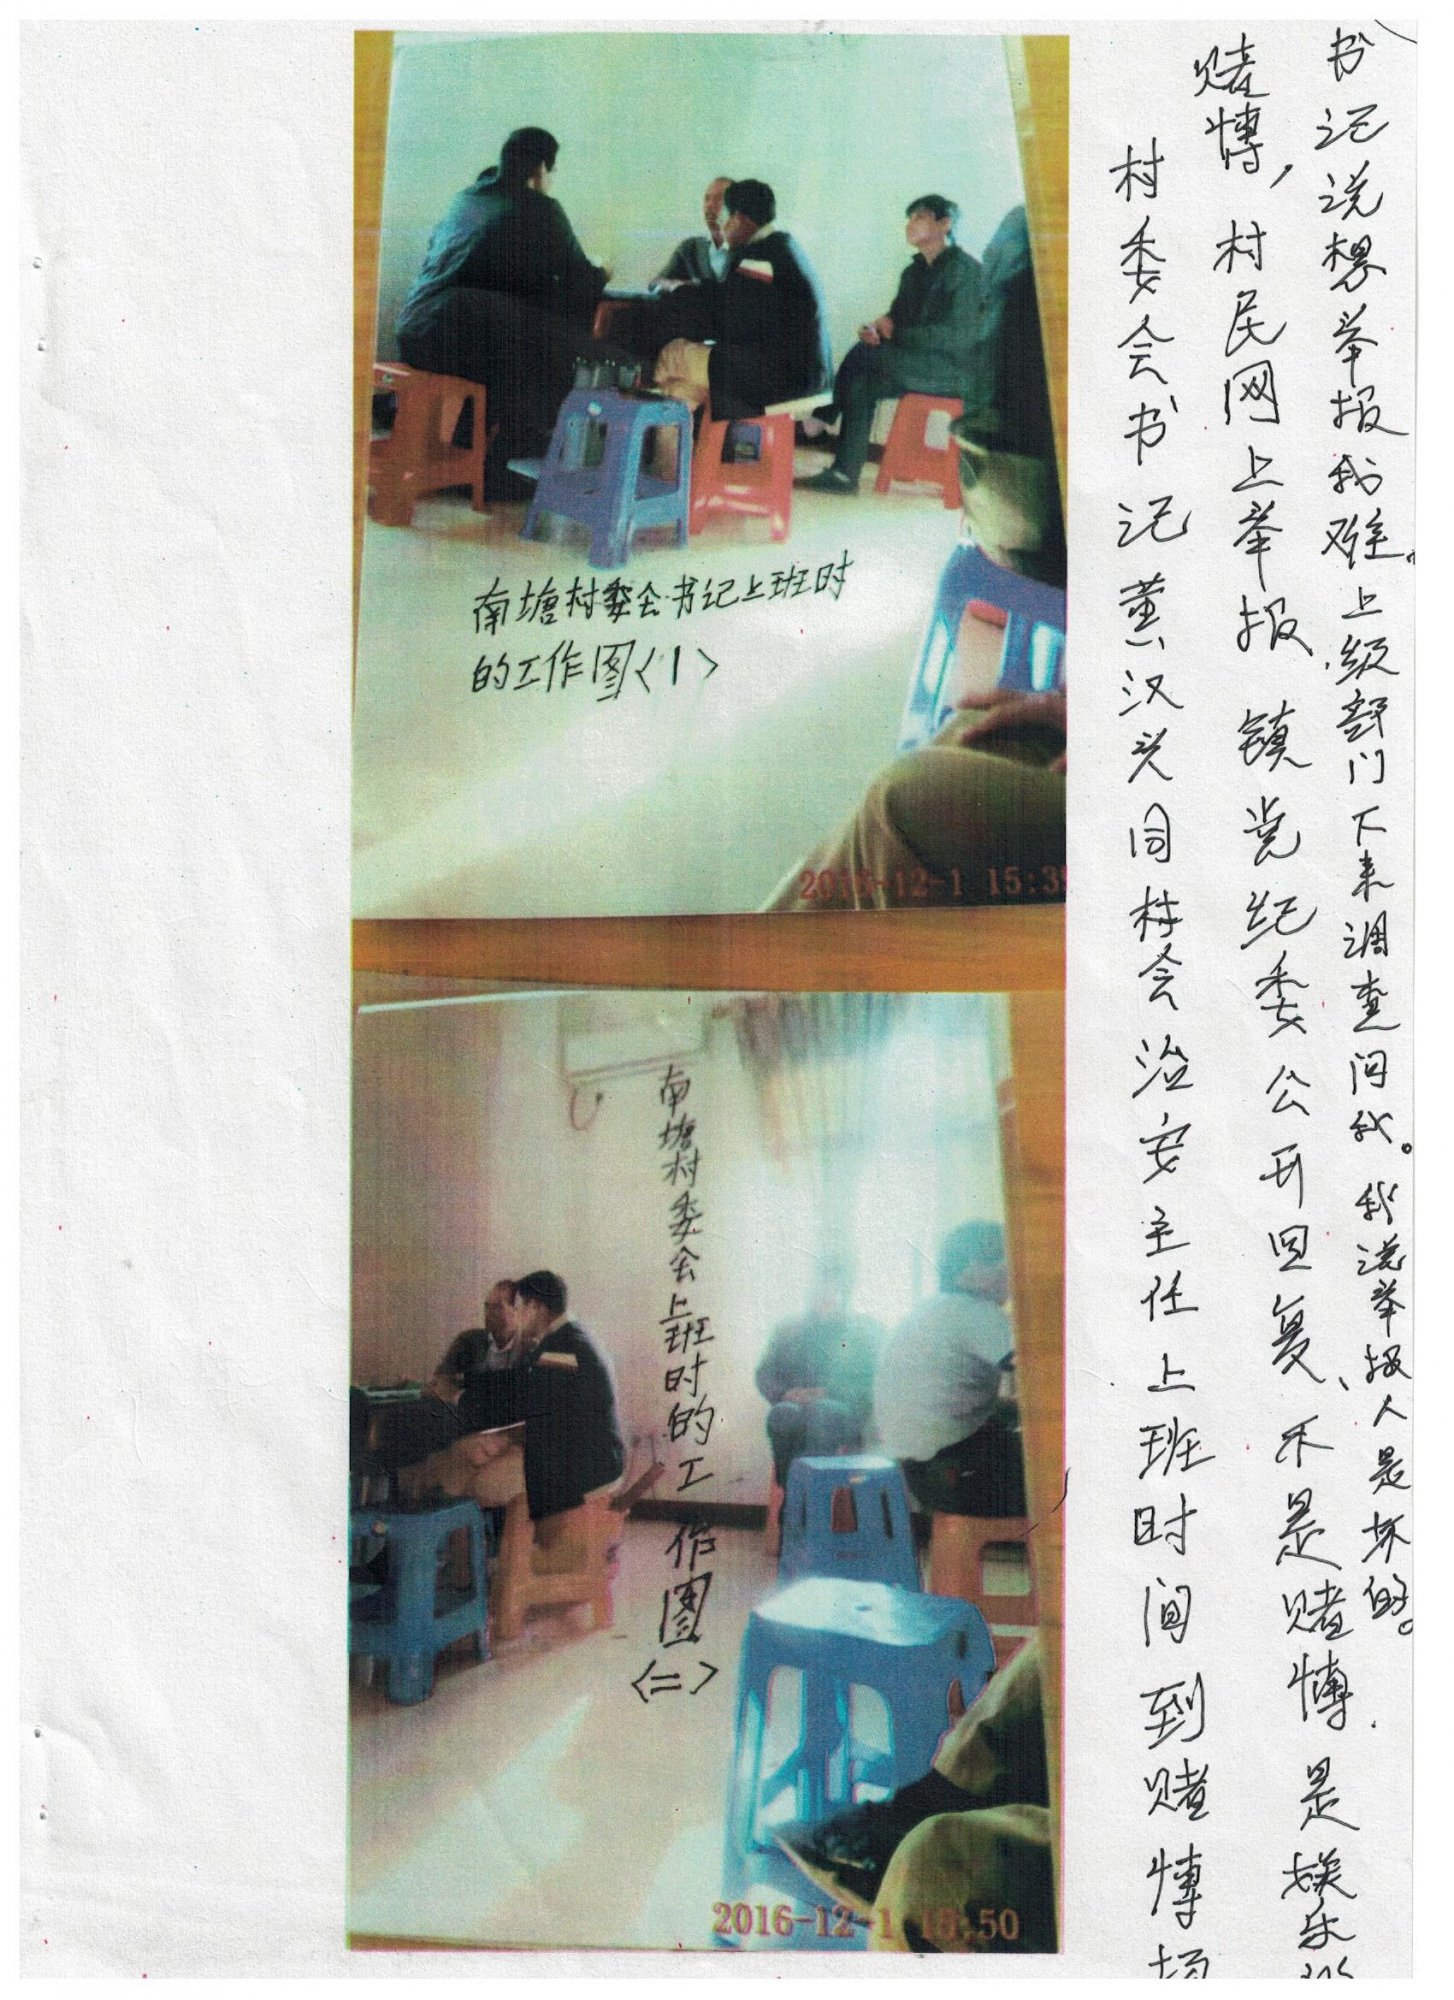 南塘村委会书记上班时
的工作图<1>
2016-12-1 15:39
南塘村委会上班时的工作图<二>
2016-12-1 15:50
村委会书记黄汉同村会治安主任上班时间到赌博场
赌博,村民网上举报镇党纪委公开回复、不是赌博.是娱乐
书记说想举报我难。上级部门下来调查问我。我说举报人是坏的。